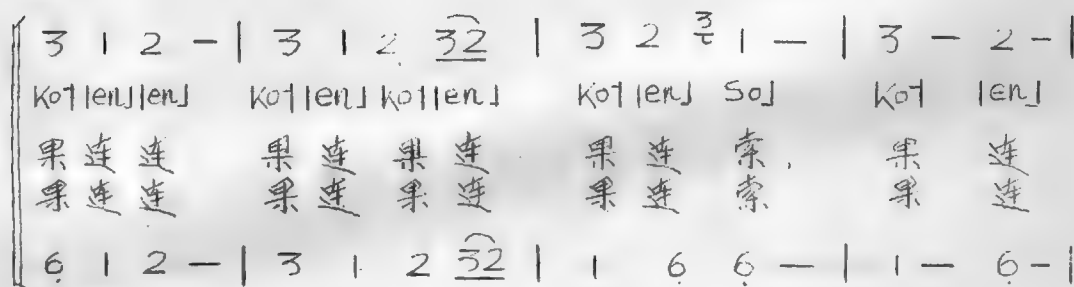 3 1 2 — | 3 1 2 32 | 3 2 3 1 — | 3 — 2 — |
ko˥ len˩ len˩ ko˥ len˩ ko˥ len˩ ko˥ len˩ so˩ ko˥ len˩
果 连 连 果 连 果 连 果 连 索, 果 连
果 连 连 果 连 果 连 果 连 索 果 连
6̣ 1 2 — | 3 1 2 32 | 1 6̣ 6̣ — | 1 — 6̣ — |